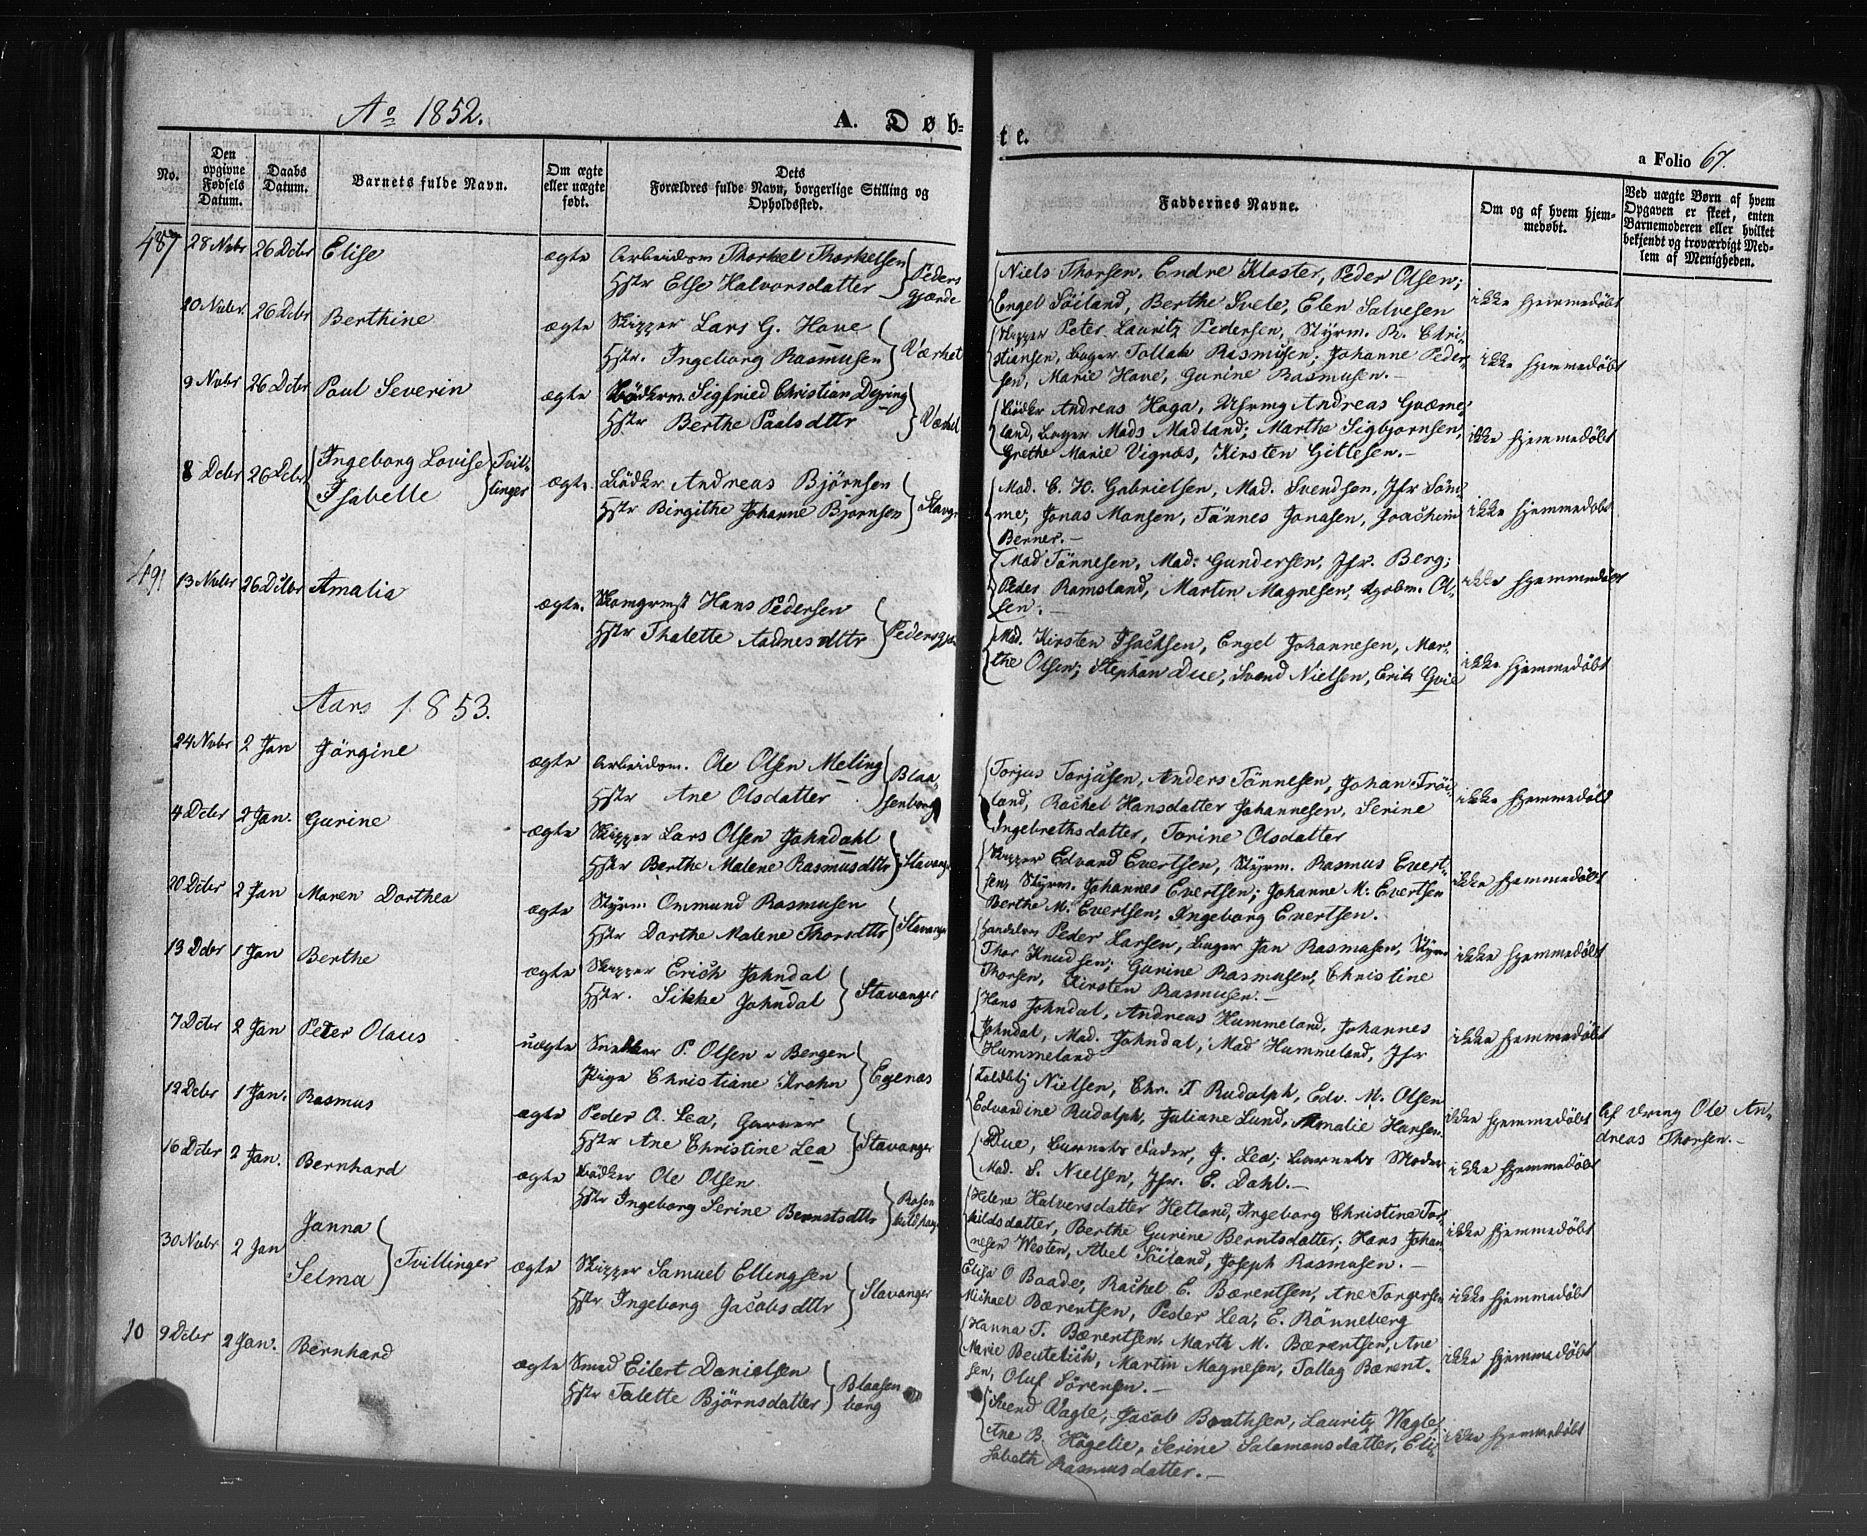 Ao 1852.
A. Døb-
te.
a Folio 67.
No.
Den opgivne Fødsels Datum.
Daabs Datum.
Barnets fulde Navn.
Om ægte eller uægte født.
Dets Forældres fulde Navn, borgerlige Stilling og Opholdssted.
Faddernes Navne.
Om og af hvem hjemmedøbt.
Ved uægte Børn af hvem Opgaven er skeet, enten Barnemoderen eller hvilket bekjendt og troværdigt Medlem af Menigheden.
487 28 Nvbr 26 Dcbr Elise ægte Arbeidsm Thorkel Thorkelsen
Hstr Else Halvorsdatter } Peders gjærde
Niels Thorsen, Endre Kloster, Peder Olsen;
Engel Söiland, Berthe Svele, Elen Salvesen
ikke hjemmedøbt
20 Nvbr. 26 Dcbr Berthine ægte Skipper Lars G. Hove
Hstr. Ingeborg Rasmusen
Skipper Peter Lauritz Pedersen, Styrm. R. Chri-
stiansen, Bager Tollak Rasmusen; Johanne Peder-
sen, Marie Hove, Gurine Rasmusen.-
ikke hjemmedøbt
9 Nvbr 26 Dcbr Paul Severin ægte Bödkerm. Sigfried Christian Dejring
Hstr Berthe Paalsdttr
Bödker Andreas Haga, Andreas
land, Bager Mads Madland; Marthe Sigbjornsen,
Grethe Marie Vignæs, Kirsten Gittesen.-
ikke hjemmedøbt
8 Dcbr 26 Dcbr Ingeborg Lovise
Isabelle } Tvillinger
ægte. Bödker Andreas Bjørnsen
Hstr Birgithe Johanne Bjornsen } Stavgr
Mad. C. H. Gabrielsen, Mad. Svendsen, Jfr Söm-
me, Jonas Monsen, Tönnes Jonasen, Joachim
Berner.-
ikke hjemmedøbt
Mad Tönnesen, Mad: Gundersen, Jfr. Berg;
Peder Ramsland, Martin Magnesen, Ol-
sen.-
ikke hjemmedøbt
491 13 Nvbr 26 Dcbr Amalia ægte. Hans Pedersen
Hstr Thalette Aadnesdttr } Pedersgj
Mad. Kirsten Isachsen, Engel Johannesen, Mar-
the Olsen; Stephan Due, Svend Nielsen, Erik Qvie
ikke hjemmedøbt
Aars 1853.
24 Nvbr 2 Jan Jörgine ægte Arbeidsm. Ole Olsen Meling
Hstr Ane Olsdatter } Blaasenborg
Torjus Torjusen, Anders Tönnesen, Johan Tröi-
land, Rachel Hansdatter Johannesen, Serine
Ingebrethsdatter, Torine Olsdatter
ikke hjemmedöbt
4 Dcbr 2 Jan. Gurine ægte Skipper Lars Olsen Johndahl
Hstr Berthe Malene Rasmusdttr } Stavanger
Skipper Edvard Evertsen, Styrm. Rasmus Evert-
sen, Styrm. Johannes Evertsen; Johanne M. Evertsen
Berthe M. Evertsen, Ingeborg Evertsen.
ikke hjemmedöbt
20 Dcbr 2 Jan Maren Dorthea ægte Styrm Ommund Rasmusen
Hstr Dorthe Malene Thorsdttr } Stavanger
Handelsm Peder Larsen, Bager Jan Rasmusen, Styrm
Thor Knudsen; Gurine Rasmusen, Christine
Thorsen, Kirsten Rasmusen.-
ikke hjemmedöbt
13 Dcbr 1 Jan Berthe ægte Skipper Erich Johndal
Hstr. Sikke Johndal } Stavanger
Hans Johndal, Andreas Hummeland, Johannes
Johndal, Mad. Johndal, Mad Hummeland, Jfr
Hummeland
ikke hjemmedöbt
7 Dcbr 2 Jan Peter Olaus uægte Snekker P. Olsen i Bergen
Pige Christiane Krohn } Egenæs
Toldbtj Nielsen, Chr. T Rudolph, Edv. M. Olsen
Edvardine Rudolph, Juliane Lund, Amalie Hansen.
ikke hjemmedöbt
Af Dreng Ole An-
dreas Thorsen.-
12 Dcbr 1 Jan. Rasmus ægte Peder A. Lea, Garver
Hstr Ane Christine Lea } Stavanger
Due, Barnets Fader, J. Lea; Barnets Moder
Mad. S. Nielsen, Jfr. E. Dahl.-
ikke hjemmedöbt
16 Dcbr 2 Jan. Bernhard ægte Bödker Ole Olsen
Hstr Ingeborg Serine Berntsdttr
Helene Halversdatter Hetland, Ingeborg Christine Tor-
kildsdatter, Berthe Gurine Berntsdatter; Hans Johan
nesen Westen, Abel Söiland, Joseph Rasmusen.-
ikke hjemmedöbt
30 Nvbr 2 Jan Janna
Selma } Tvillinger
ægte Skipper Samuel Ellingsen
Hstr Ingeborg Jacobsdttr } Stavanger
Elisa O Baade, Rachel E. Bærentsen, Ane Torgersen
Michael Bærentsen, Peder Lea, E. Rönneberg
ikke hjemmedöbt
Hanna T. Bærentsen, Marth M. Bærentsen, Ane
Marie Beutelich, Martin Magnesen, Tallag Bærent-
sen, Oluf Sörensen.-
ikke hjemmedöbt
10 9 Dcbr 2 Jan. Bernhard ægte Smed Eilert Danielsen
Hstr Talette Bjørnsdatter } Blaasenborg
Svend Vagle, Jacob Brathsen, Lauritz Vagle,
Ane B. Högelie, Serine Salomonsdatter, Eli-
sabeth Rasmusdatter.-
ikke hjemmedöbt